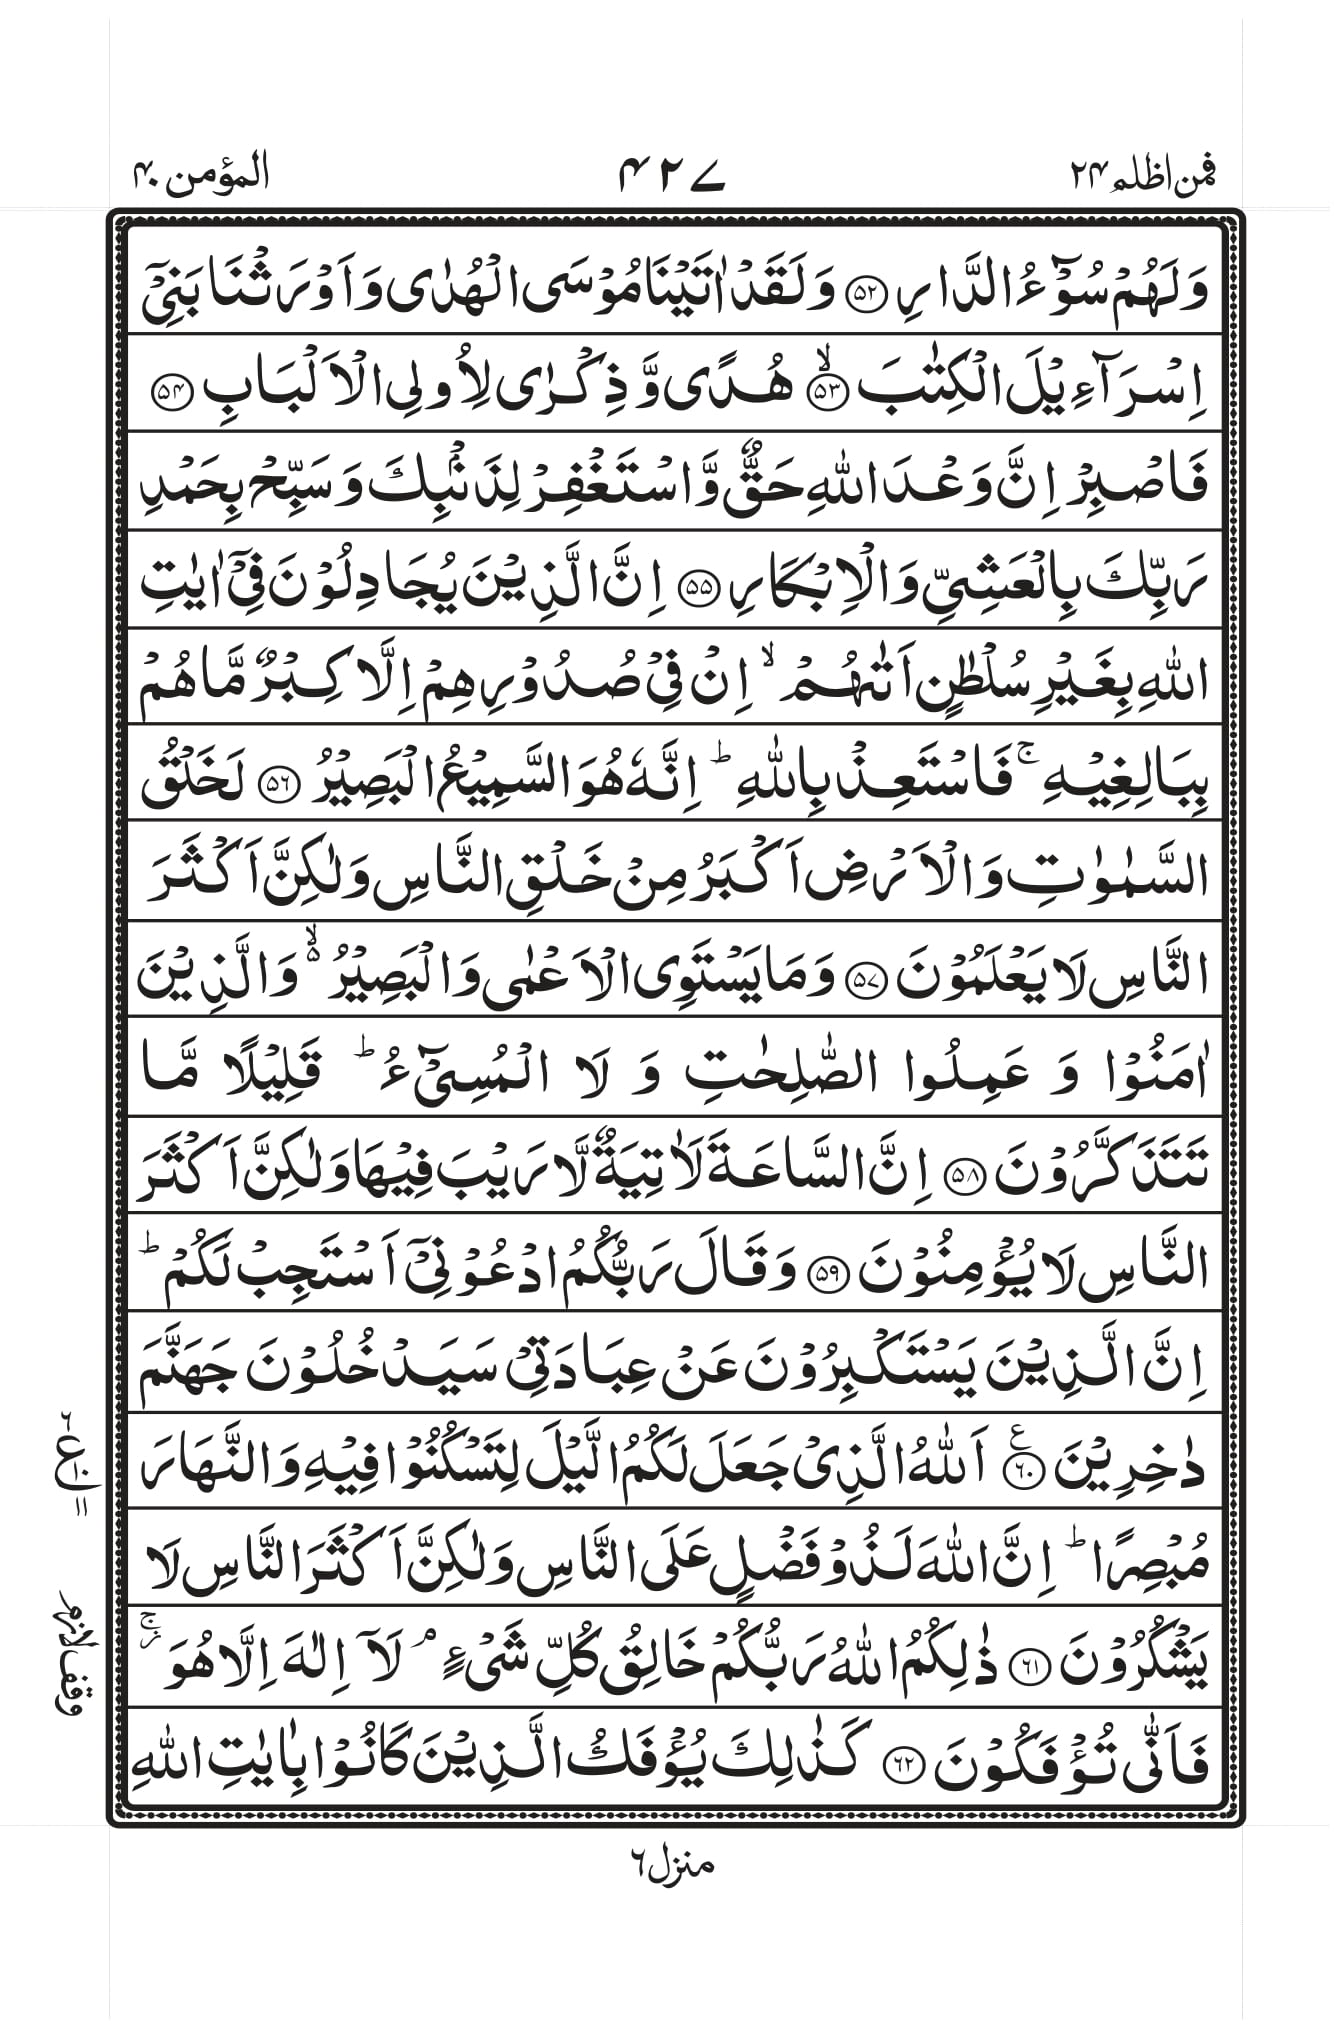 فمن اظلم ۲۴
۴۲۷
المؤمن ۴۰
وَلَهُمْ سُوْٓءُ الدَّارِ ﴿۵۲﴾ وَلَقَدْ اٰتَيْنَا مُوْسَى الْهُدٰى وَاَوْرَثْنَا بَنِيْٓ
اِسْرَآءِيْلَ الْكِتٰبَ ﴿۵۳﴾ۙ هُدًى وَّذِكْرٰى لِاُولِى الْاَلْبَابِ ﴿۵۴﴾
فَاصْبِرْ اِنَّ وَعْدَ اللّٰهِ حَقٌّ وَّاسْتَغْفِرْ لِذَنْۢبِكَ وَسَبِّحْ بِحَمْدِ
رَبِّكَ بِالْعَشِيِّ وَالْاِبْكَارِ ﴿۵۵﴾ اِنَّ الَّذِيْنَ يُجَادِلُوْنَ فِيْٓ اٰيٰتِ
اللّٰهِ بِغَيْرِ سُلْطٰنٍ اَتٰىهُمْ ۙ اِنْ فِيْ صُدُوْرِهِمْ اِلَّا كِبْرٌ مَّا هُمْ
بِبَالِغِيْهِ ۚ فَاسْتَعِذْ بِاللّٰهِ ؕ اِنَّهٗ هُوَ السَّمِيْعُ الْبَصِيْرُ ﴿۵۶﴾ لَخَلْقُ
السَّمٰوٰتِ وَالْاَرْضِ اَكْبَرُ مِنْ خَلْقِ النَّاسِ وَلٰكِنَّ اَكْثَرَ
النَّاسِ لَا يَعْلَمُوْنَ ﴿۵۷﴾ وَمَا يَسْتَوِى الْاَعْمٰى وَالْبَصِيْرُ ۵ۙ وَالَّذِيْنَ
اٰمَنُوْا وَ عَمِلُوا الصّٰلِحٰتِ وَ لَا الْمُسِيْٓءُ ؕ قَلِيْلًا مَّا
تَتَذَكَّرُوْنَ ﴿۵۸﴾ اِنَّ السَّاعَةَ لَاٰتِيَةٌ لَّا رَيْبَ فِيْهَا وَلٰكِنَّ اَكْثَرَ
النَّاسِ لَا يُؤْمِنُوْنَ ﴿۵۹﴾ وَقَالَ رَبُّكُمُ ادْعُوْنِيْٓ اَسْتَجِبْ لَكُمْ ؕ
اِنَّ الَّذِيْنَ يَسْتَكْبِرُوْنَ عَنْ عِبَادَتِيْ سَيَدْخُلُوْنَ جَهَنَّمَ
دٰخِرِيْنَ ﴿۶۰﴾ع اَللّٰهُ الَّذِيْ جَعَلَ لَكُمُ الَّيْلَ لِتَسْكُنُوْا فِيْهِ وَالنَّهَارَ
مُبْصِرًا ؕ اِنَّ اللّٰهَ لَذُوْ فَضْلٍ عَلَى النَّاسِ وَلٰكِنَّ اَكْثَرَ النَّاسِ لَا
يَشْكُرُوْنَ ﴿۶۱﴾ ذٰلِكُمُ اللّٰهُ رَبُّكُمْ خَالِقُ كُلِّ شَيْءٍ ۘ لَآ اِلٰهَ اِلَّا هُوَ ۚز
فَاَنّٰى تُؤْفَكُوْنَ ﴿۶۲﴾ كَذٰلِكَ يُؤْفَكُ الَّذِيْنَ كَانُوْا بِاٰيٰتِ اللّٰهِ
۶
ع ۱۰
۱۱
وقف لازم
منزل ۶